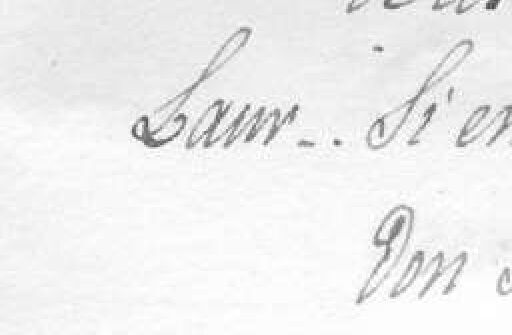 Laur_. Si en
Don